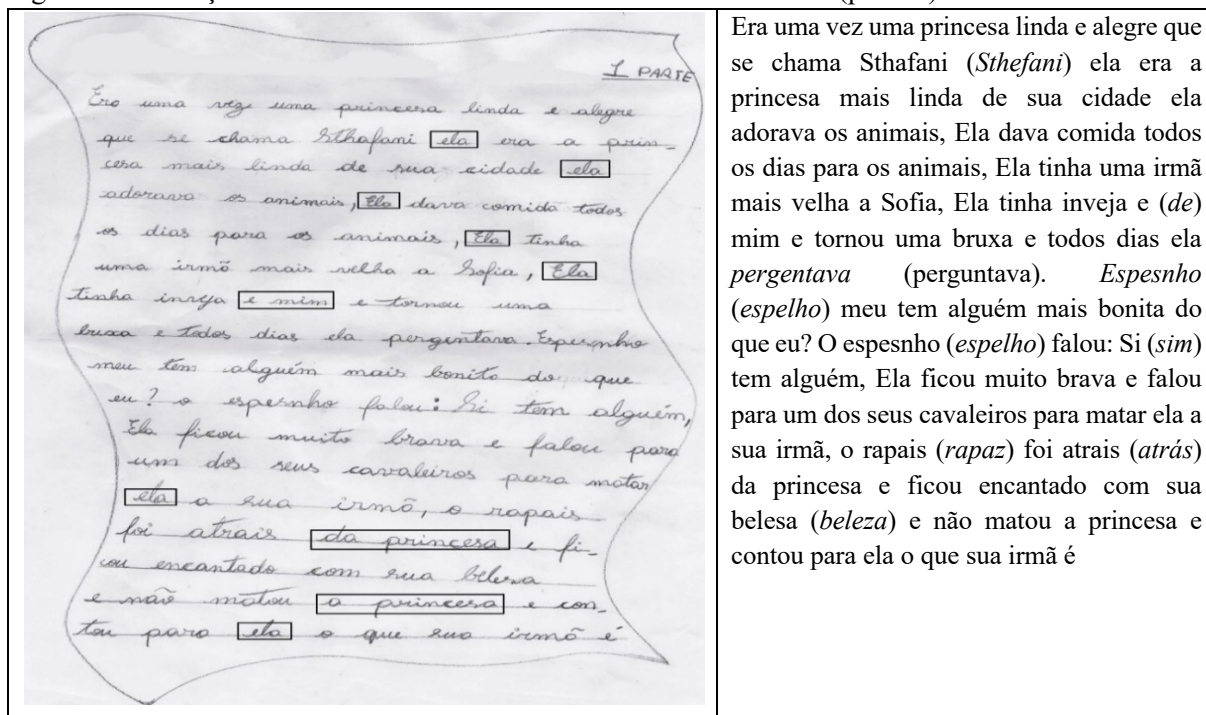 1 PARTE
Era uma vez uma princesa linda e alegre
que se chama Sthafani ela era a prin-
cesa mais linda de sua cidade ela
adorava os animais, Ela dava comida todos
os dias para os animais, Ela tinha
uma irmã mais velha a Sofia, Ela
tinha inveja e mim e tornou uma
bruxa e todos dias ela pergentava. Espesnho
meu tem alguém mais bonita do que
eu? o espesnho falou: Si tem alguém,
Ela ficou muito brava e falou para
um dos seus cavaleiros para matar
ela a sua irmã, o rapais
foi atrais da princesa e fi-
cou encantado com sua belesa
e não matou a princesa e con-
tou para ela o que sua irmã é
Era uma vez uma princesa linda e alegre que
se chama Sthafani (Sthefani) ela era a
princesa mais linda de sua cidade ela
adorava os animais, Ela dava comida todos
os dias para os animais, Ela tinha uma irmã
mais velha a Sofia, Ela tinha inveja e (de)
mim e tornou uma bruxa e todos dias ela
pergentava (perguntava). Espesnho
(espelho) meu tem alguém mais bonita do
que eu? O espesnho (espelho) falou: Si (sim)
tem alguém, Ela ficou muito brava e falou
para um dos seus cavaleiros para matar ela a
sua irmã, o rapais (rapaz) foi atrais (atrás)
da princesa e ficou encantado com sua
belesa (beleza) e não matou a princesa e
contou para ela o que sua irmã é